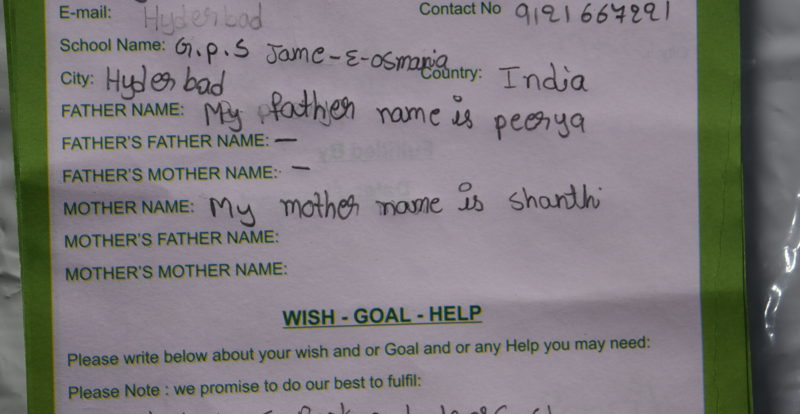 E-mail: Hyderbad Contact No 9121667291
School Name: G.P.S Jame-E-osmania
City: Hyderbad Country: India
FATHER NAME: My father name is peerya
FATHER'S FATHER NAME: —
FATHER'S MOTHER NAME: —
MOTHER NAME: My mother name is shanthi
MOTHER'S FATHER NAME:
MOTHER'S MOTHER NAME:
WISH - GOAL - HELP
Please write below about your wish and or Goal and or any Help you may need:
Please Note : we promise to do our best to fulfil: